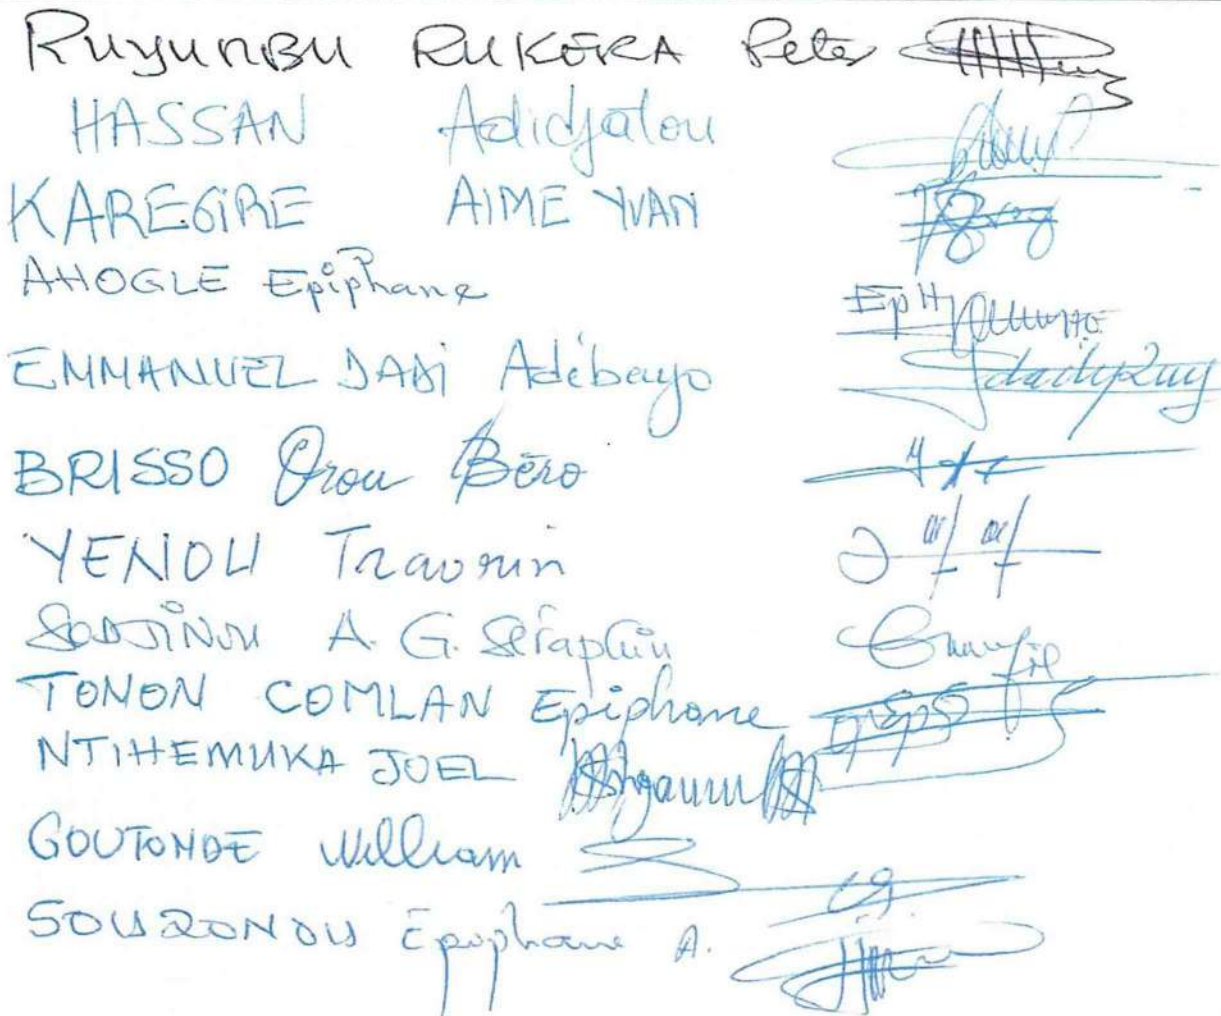 RUYUNBU RUKERA Peter
HASSAN Adidjatou
KAREGIRE AIME YVAN
AHOGLE Epiphane
EMMANUEL DADI Adébayo
BRISSO Orou Béro
YENOU Travorin
SODJINOU A. G. Séraphin
TONON COMLAN Epiphane
NTIHEMUKA JOEL
GOUTONDE William
SOUZONOU Epiphane A.